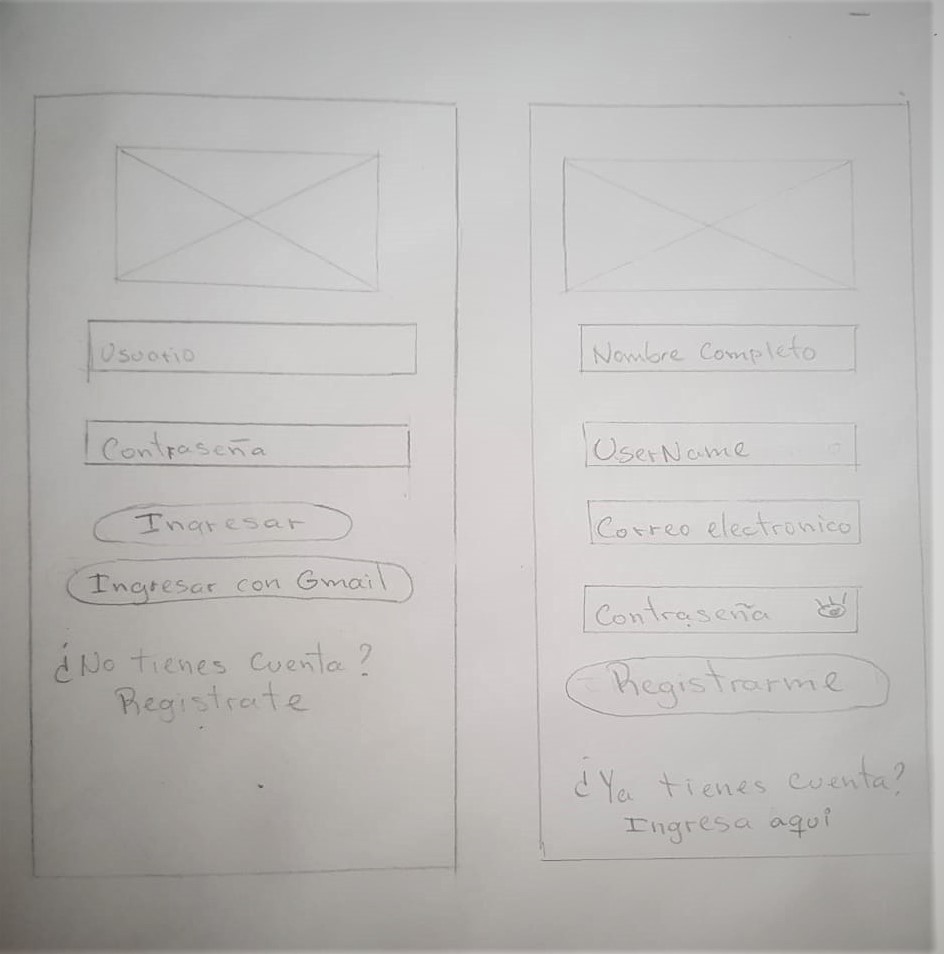 Usuario
Contraseña
Ingresar
Ingresar con Gmail
¿No tienes cuenta?
Registrate
Nombre Completo
UserName
Correo electronico
Contraseña
Registrarme
¿Ya tienes cuenta?
Ingresa aquí